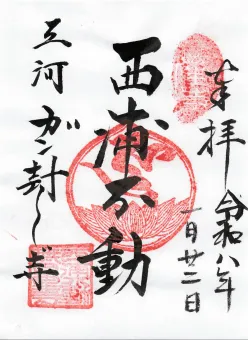 奉拝
令和八年
一月廿二日
西浦不動
三河 ガン封じ寺